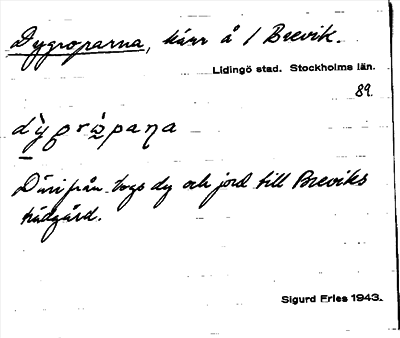 Dygroparna, kärr å / Brevik.
Lidingö stad. Stockholms län.
89.
dỳgrò̤paṇa
Därifrån togs dy och jord till Breviks
trädgård.
Sigurd Fries 1943.